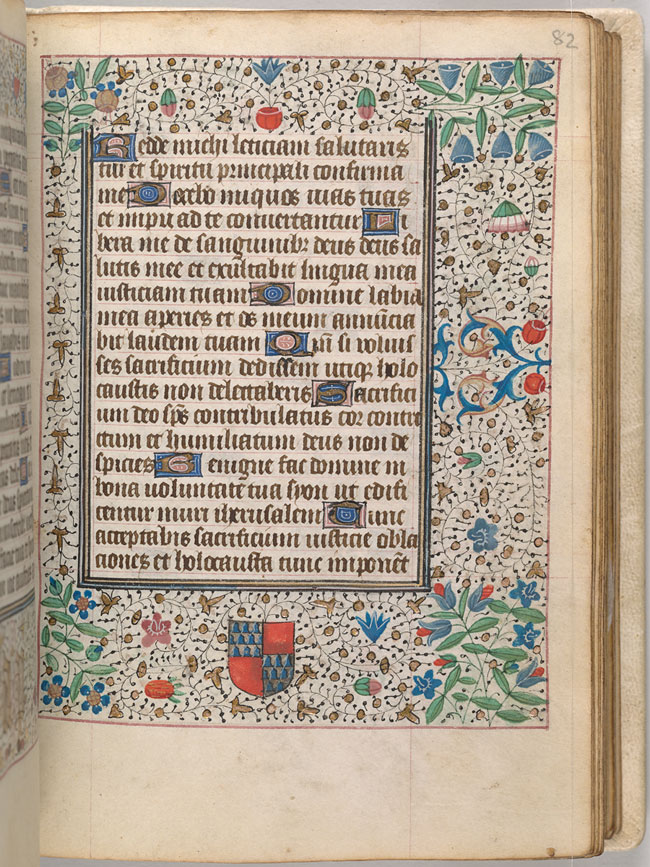 82
Redde michi leticiam salutaris
tui et spiritu principali confirma
me Docebo iniquos uias tuas
et impii ad te conuertantur Li
bera me de sanguinibꝫ deus deus sa
lutis mee et exultabit lingua mea
iusticiam tuam Domine labia
mea aperies et os meum annūcia
bit laudem tuam Qm̄ si voluis
ses sacrificium dedissem utiqꝫ holo
caustis non delectaberis Sacrifici
um deo sp̄s contribulatus cor contri
ctum et humiliatum deus non de
spicies Benigne fac domine in
bona uoluntate tua syon ut edifi
centur muri iherusalem Tunc
acceptabis sacrificium iusticie obla
ciones et holocausta tunc imponēt